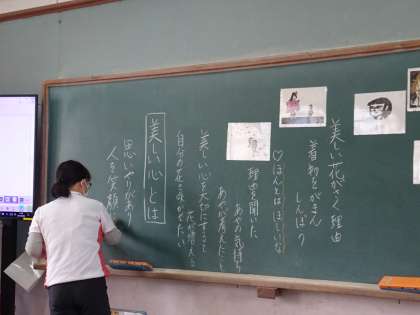 美しい花がさく理由
着物をがまん
しんぼう
♡ほんとはほしいな
理由を聞いた
あやの気持ち
あやが考えたこと
美しい心を大切にすると
花が増える
自分の花をさかせたい
美しい心とは
思いやりがあり
人を笑顔